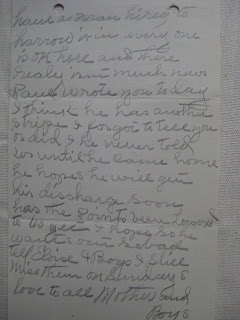 have a man hired to
harrow is in every one
is OK here and there
realy isn't much news
Paul wrote you today
I think he has another
stripe I forgot to tell you
so did & he never told
us until he came home
he hopes he will get
his discharge soon
has the points been lowered
to 45 yet I hope so he
wants out so bad
tell Elsie & Boys I still
miss them on Sunday's
love to all Mother and
Boys